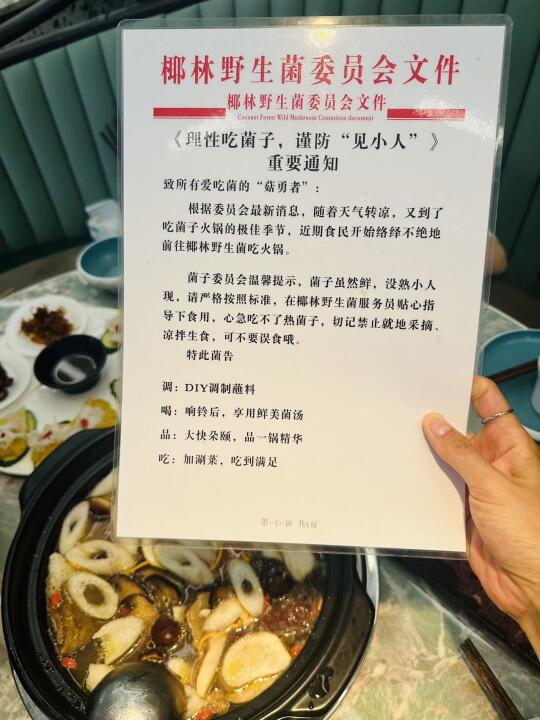 椰林野生菌委员会文件
椰林野生菌委员会文件
Coconut Forest Wild Mushroom Committee document
《理性吃菌子，谨防“见小人”》
重要通知
致所有爱吃菌的“菇勇者”：
根据委员会最新消息，随着天气转凉，又到了
吃菌子火锅的极佳季节，近期食民开始络绎不绝地
前往椰林野生菌吃火锅。
菌子委员会温馨提示，菌子虽然鲜，没熟小人
现，请严格按照标准，在椰林野生菌服务员贴心指
导下食用，心急吃不了热菌子，切记禁止就地采摘、
凉拌生食，可不要误食哦。
特此菌告
调：DIY调制蘸料
喝：响铃后，享用鲜美菌汤
品：大快朵颐，品一锅精华
吃：加涮菜，吃到满足
第-1-页 共1页